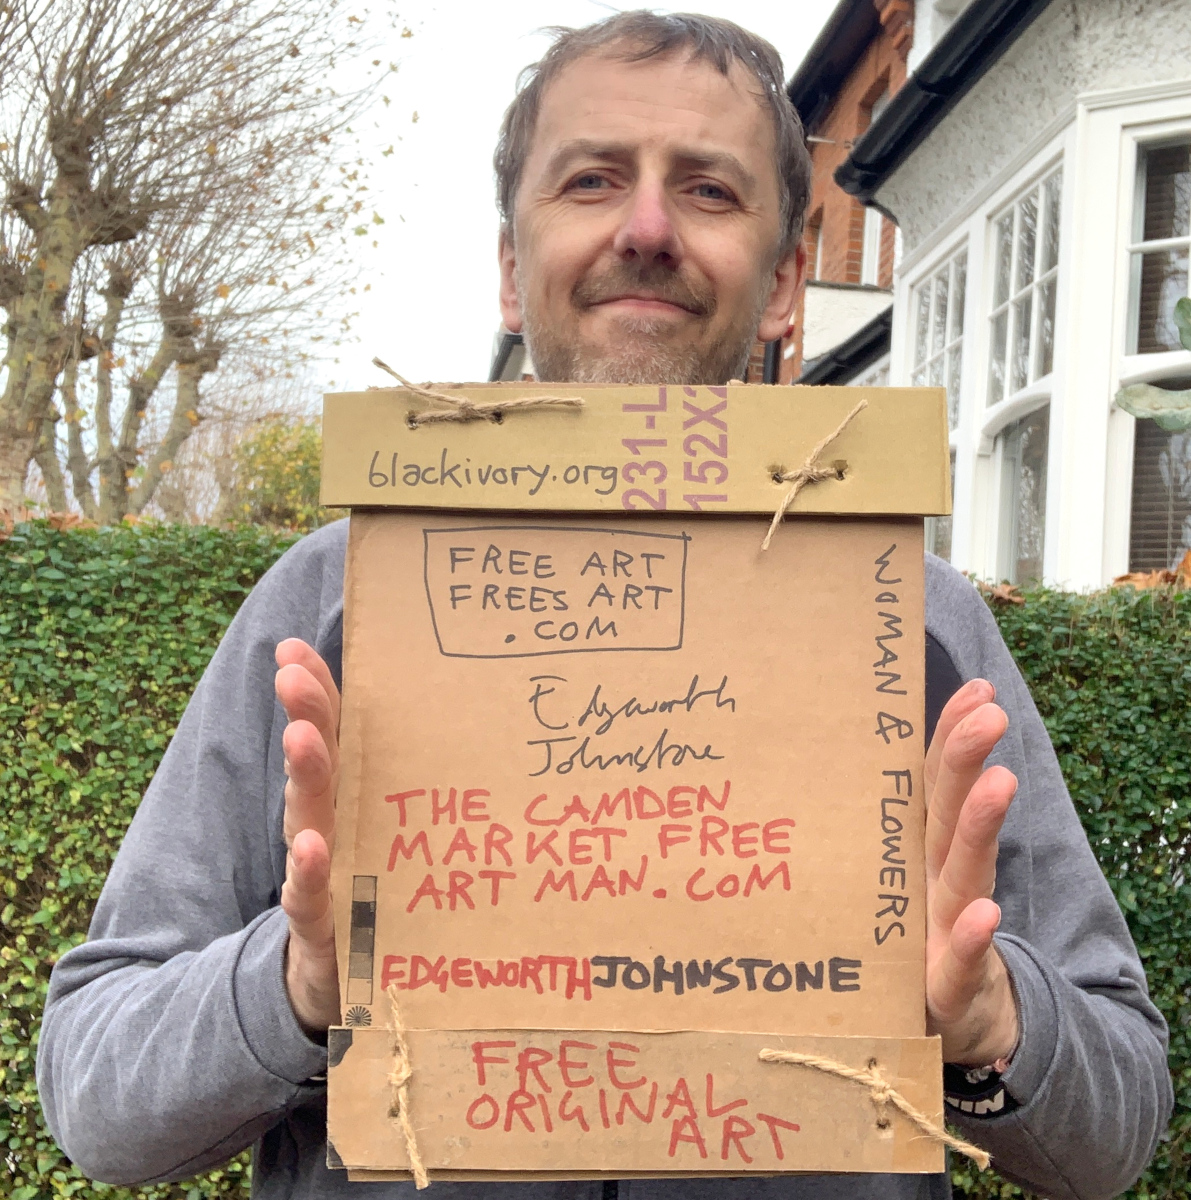 blackivory.org
231-L
152X2
FREE ART
FREES ART
.COM
Edgworth
Johnstone
WOMAN & FLOWERS
THE CAMDEN
MARKET FREE
ART MAN.COM
EDGEWORTHJOHNSTONE
FREE
ORIGINAL
ART